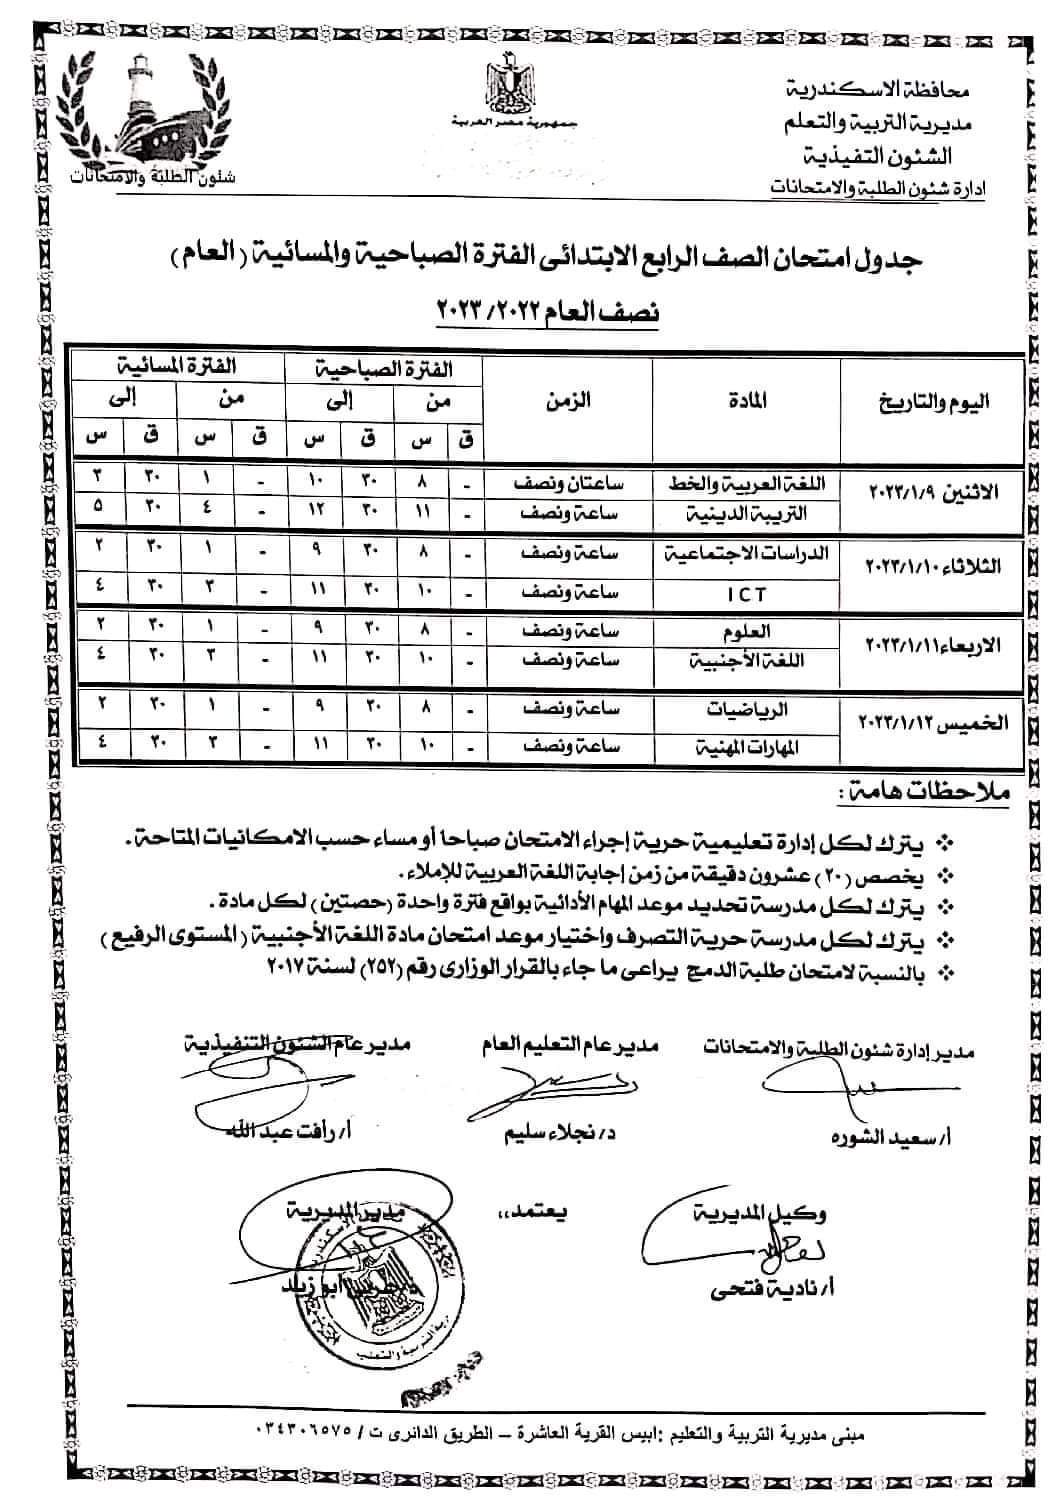 محافظة الاسكندرية
مديرية التربية والتعلم
الشئون التفيذية
إدارة شئون الطلبة والامتحانات
جمهورية مصر العربية
شئون الطلبة والامتحانات
جدول امتحان الصف الرابع الابتدائى الفترة الصباحية والمسائية (العام)
نصف العام ٢٠٢٣/٢٠٢٢
اليوم والتاريخ المادة الزمن الفترة الصباحية الفترة المسائية
من إلى من إلى
ق س ق س ق س ق س
الاثنين ٢٠٢٣/١/٩ اللغة العربية والخط ساعتان ونصف - ٨ ٣٠ ١٠ - ١ ٣٠ ٣
التربية الدينية ساعة ونصف - ١١ ٣٠ ١٢ - ٤ ٣٠ ٥
الثلاثاء ٢٠٢٣/١/١٠ الدراسات الاجتماعية ساعة ونصف - ٨ ٣٠ ٩ - ١ ٣٠ ٢
ICT ساعة ونصف - ١٠ ٣٠ ١١ - ٣ ٣٠ ٤
الاربعاء ٢٠٢٣/١/١١ العلوم ساعة ونصف - ٨ ٣٠ ٩ - ١ ٣٠ ٢
اللغة الأجنبية ساعة ونصف - ١٠ ٣٠ ١١ - ٣ ٣٠ ٤
الخميس ٢٠٢٣/١/١٢ الرياضيات ساعة ونصف - ٨ ٣٠ ٩ - ١ ٣٠ ٢
المهارات المهنية ساعة ونصف - ١٠ ٣٠ ١١ - ٣ ٣٠ ٤
ملاحظات هامة :
❖ يترك لكل إدارة تعليمية حرية إجراء الامتحان صباحا أو مساء حسب الامكانيات المتاحة .
❖ يخصص (٢٠) عشرون دقيقة من زمن إجابة اللغة العربية للإملاء .
❖ يترك لكل مدرسة تحديد موعد المهام الأدائية بواقع فترة واحدة (حصتين) لكل مادة .
❖ يترك لكل مدرسة حرية التصرف واختيار موعد امتحان مادة اللغة الأجنبية (المستوى الرفيع)
❖ بالنسبة لامتحان طلبة الدمج يراعى ما جاء بالقرار الوزارى رقم (٢٥٢) لسنة ٢٠١٧
مدير إدارة شئون الطلبة والامتحانات مدير عام التعليم العام مدير عام الشئون التنفيذية
أ/ سعيد الشوره د/ نجلاء سليم أ/ رافت عبد الله
وكيل المديرية يعتمد،، مدير المديرية
أ/ نادية فتحى أبو زيد
التربية والتعليم
مبنى مديرية التربية والتعليم :ابيس القرية العاشرة – الطريق الدائرى ت / ٠٣٤٣٠٦٥٧٥